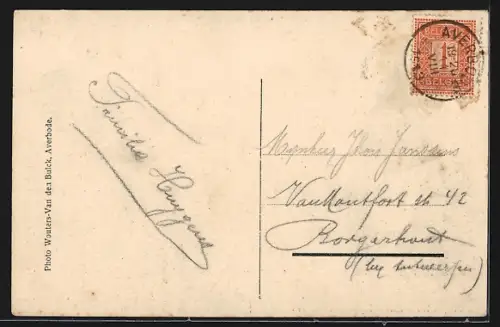 Photo Wouters-Van den Bulck, Averbode.
Familie Huygens
AVERBODE
1
BELGIE
Mynheer Jans Janssens
Van Montfort st 42
Borgerhout
(bij Antwerpen)